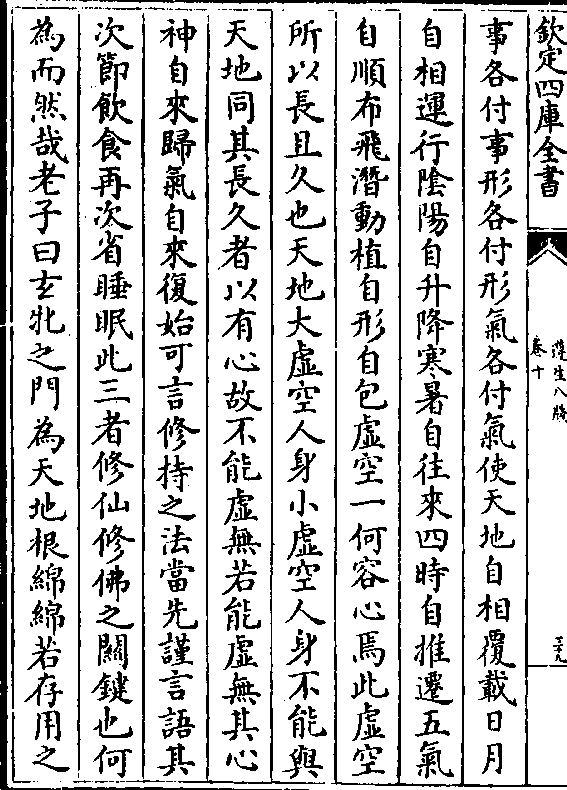 欽定四庫全書
遵生八牋
卷十
三十九
事各付事形各付形氣各付氣使天地自相覆載日月
自相運行陰陽自升降寒暑自往來四時自推遷五氣
自順布飛潛動植自形自包虛空一何容心焉此虛空
所以長且久也天地大虛空人身小虛空人身不能與
天地同其長久者以有心故不能虛無若能虛無其心
神自來歸氣自來復始可言修持之法當先謹言語其
次節飲食再次省睡眠此三者修仙修佛之關鍵也何
為而然哉老子曰玄牝之門為天地根綿綿若存用之